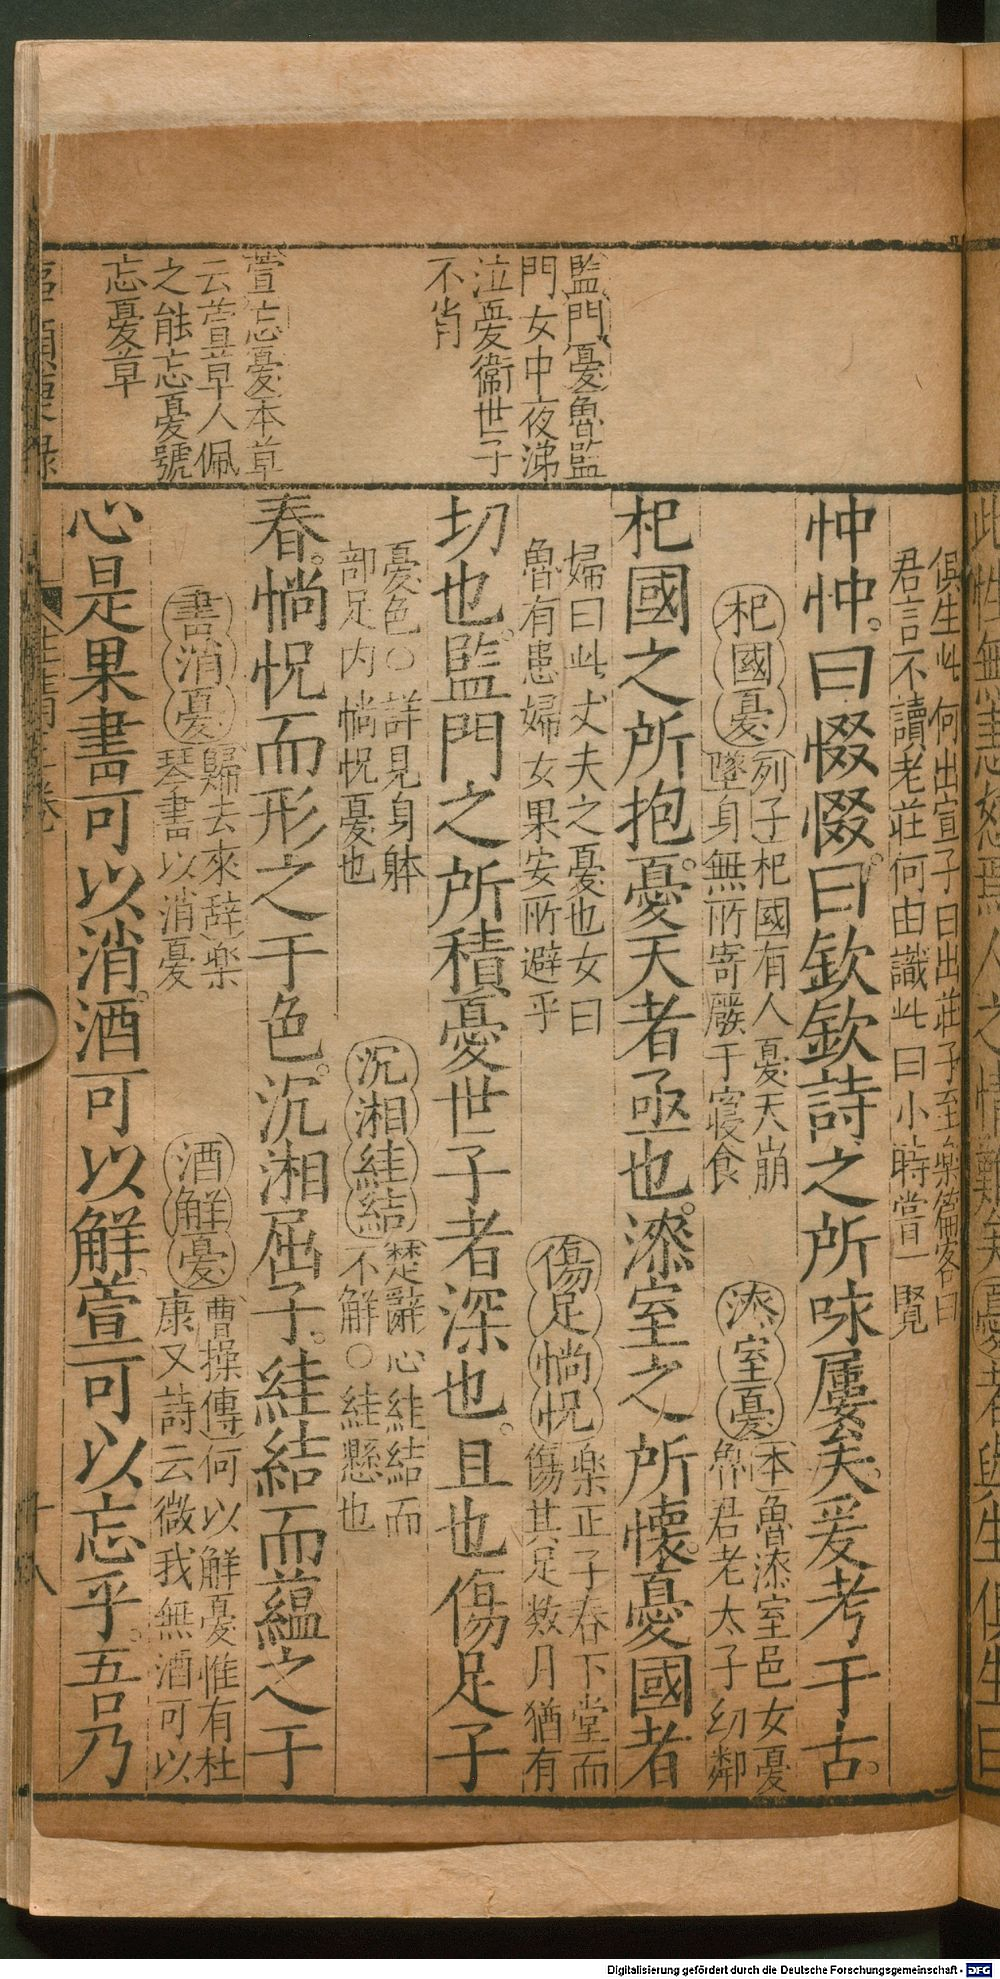 監門憂魯監
門女中夜涕
泣憂衞世子
不肖
萱忘憂本草
云萱草人佩
之能忘憂號
忘憂草
俱生此何出宣子曰出莊子至樂篇客曰
君言不讀老莊何由識此曰小時嘗一覽
忡忡。曰惙惙。曰欽欽詩之所咏屢矣。爰考于古。
杞國憂
列子杞國有人憂天崩
墜身無所寄廢于寝食
漆室憂
本魯漆室邑女憂
魯君老太子幼鄰
杞國之所抱。憂天者亟也。漆室之所懷。憂國者
婦曰此丈夫之憂也女曰
魯有患婦女果安所避乎
傷足惝怳
樂正子春下堂而
傷其足数月猶有
切也。監門之所積憂世子者深也。且也傷足子
憂色○詳見身躰
部足内惝怳憂也
沉湘絓結
楚辭心絓結而
不解○絓懸也
春。惝怳而形之于色。沉湘屈子。絓結而蘊之于
書消憂
歸去來辞樂
琴書以消憂
酒解憂
曹操傳何以解憂惟有杜
康又詩云微我無酒可以
心是果書可以消。酒可以解。萱可以忘乎。吾乃
十八
Digitalisierung gefördert durch die Deutsche Forschungsgemeinschaft - DFG